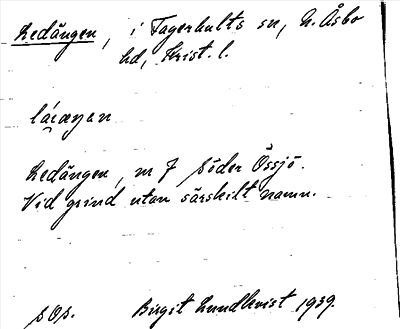 Ledängen, i Fagerhults sn, N. Åsbo
hd, Krist. l.
Ledängen, nr 7 Söder Össjö.
Vid grind utan särskilt namn.
Birgit Lundkvist 1939